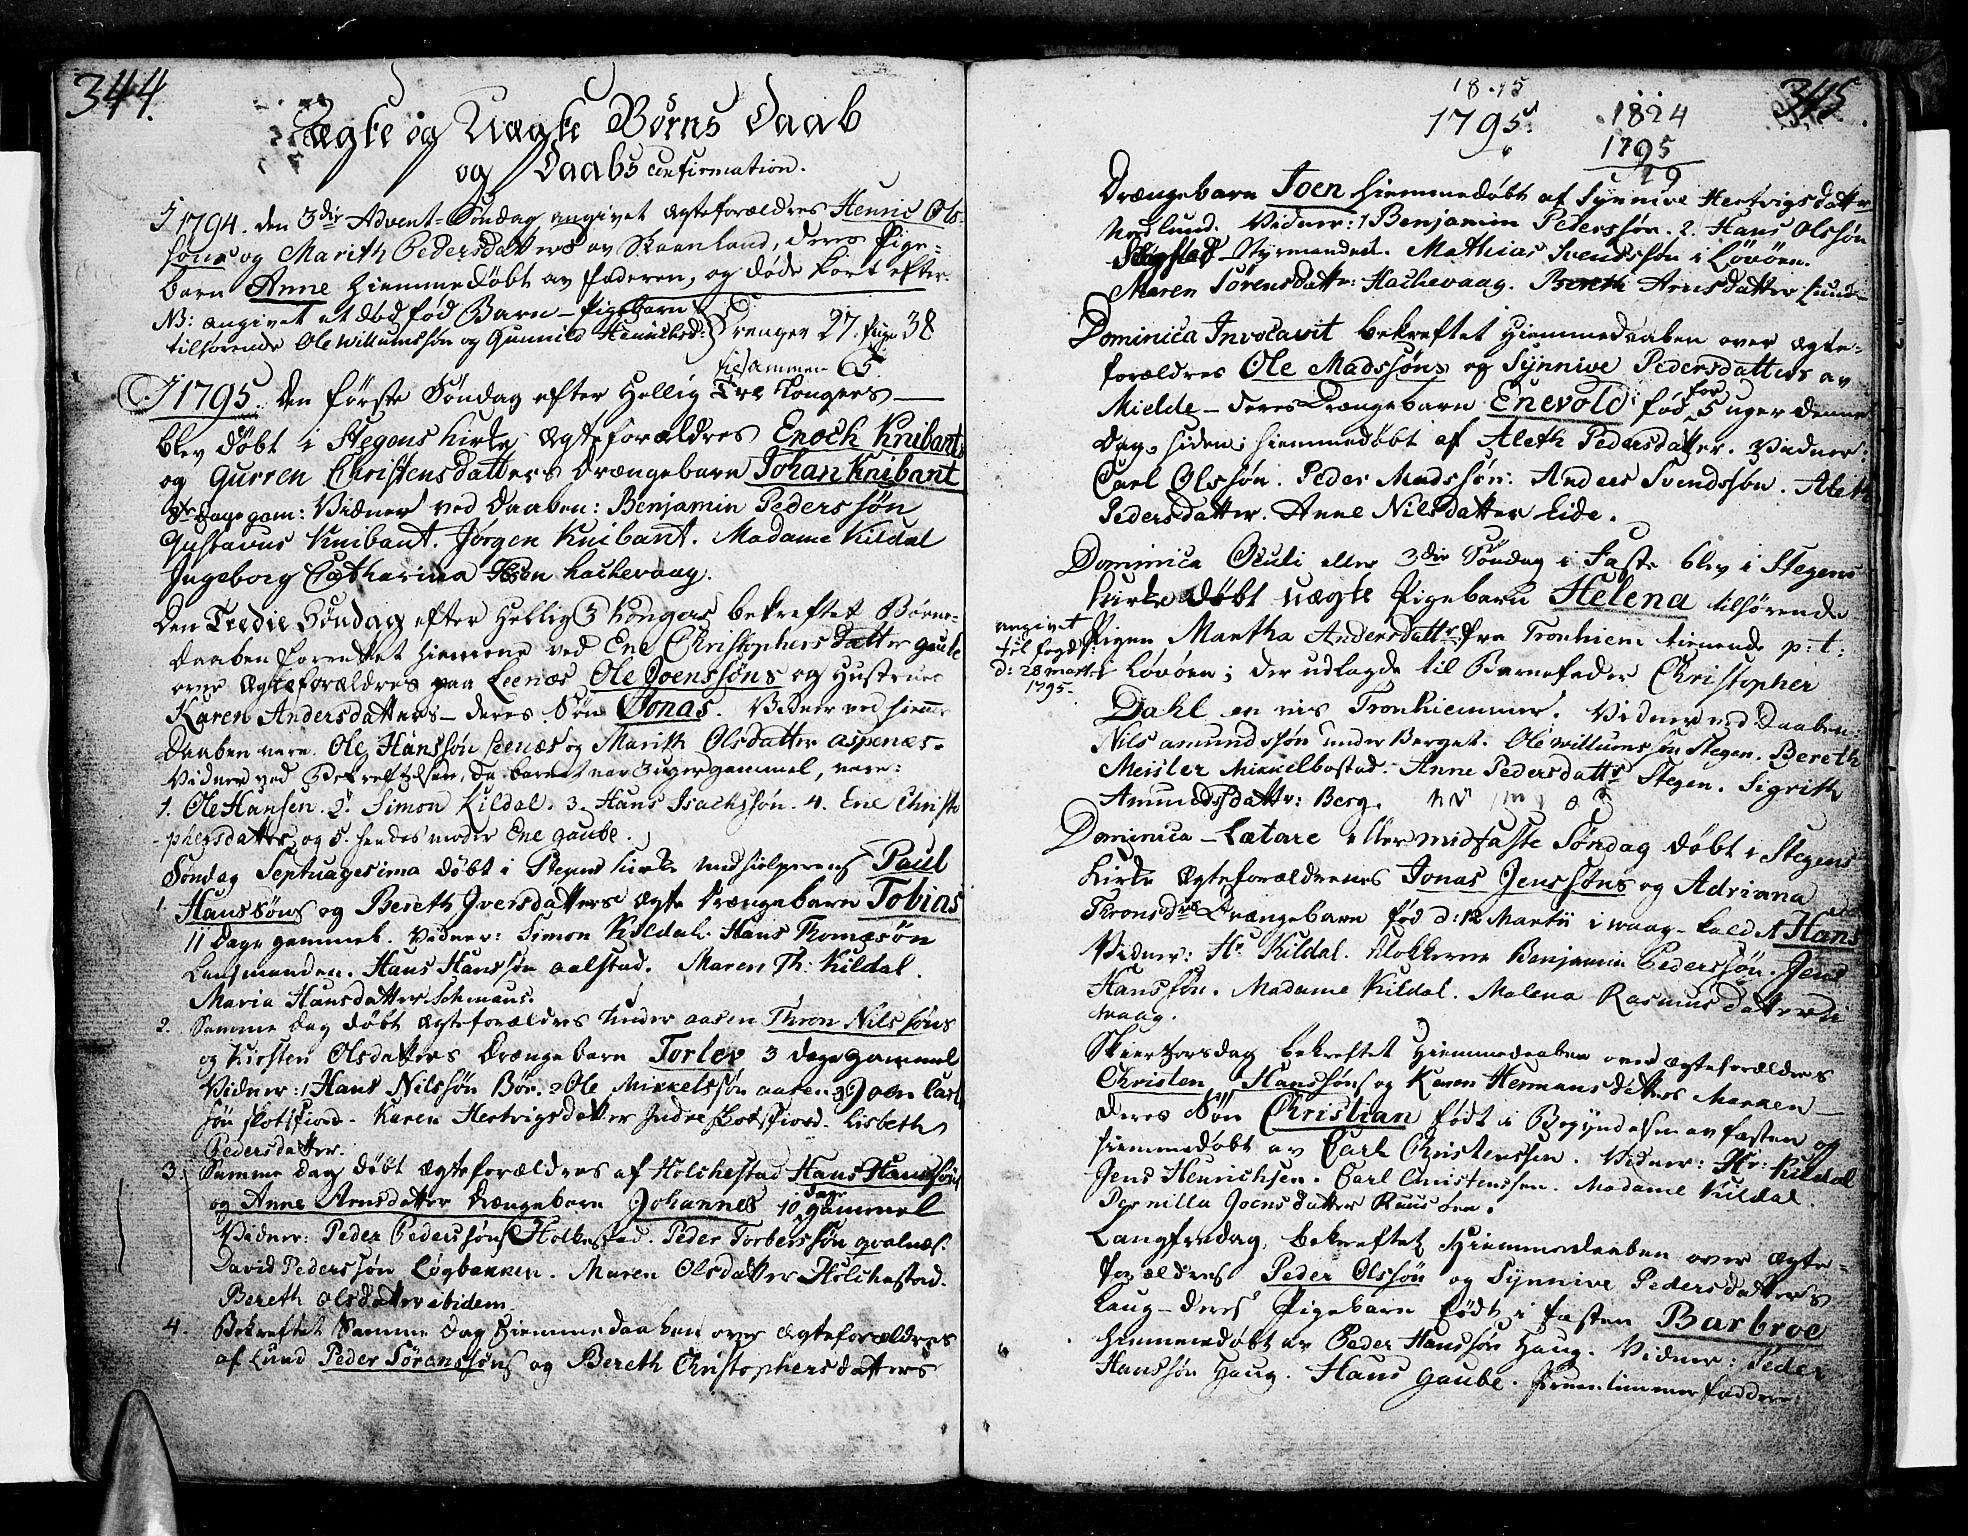 344.
Ægte og Uægte Børns Daab
og Daabs confirmation.
I 1794. den 3die Advent-Søndag angivet Ægteforældres Henric Ols-
søns og Marith Pedersdatters av Skaanland, deres Pige-
barn Anne hiemmedøbt av faderen, og døde kort efter.
NB: angivet et død fød Barn - Pigebarn
tilhørende Ole Willumssøn og Gunnild
Drenger 27. Piger 38
tilsammen 65
I 1795. Den første Søndag efter Hellig Tre Kongers —
blev døbt i Stegens kirke Ægteforældres Enoch Knibants
og Gurren Christensdatters Drængebarn Johan Knibant
dage gam: Vidner ved Daaben: Benjamin Pederssøn
Gustavus Knibant. Jørgen Knibant. Madame Kildal
Ingeborg Catharina hachevaag.
Den Tredie Søndag efter Hellig 3 Kongers bekreftet Børne-
daaben forrettet hiemme ved Ene Christophersdatter gaube
over Ægteforældres paa Leenæs Ole Joenssøns og Hustrue
Karen Andersdatters - deres Søn Jonas. Vidner ved hiemme
daaben vare. Ole Hanssøn Leenæs og Marith Olsdatter aspenæs.
Vidner ved Bekreftelsen, da barnet var 3 uger gammel, vare:
1. Ole Hansen. 2. Simon Kildal. 3. Hans Isachssøn. 4. Ene Christo
phersdatter og 5. hendes moder Ene gaube.
Søndag Septuagesima døbt i Stegens kirke Medhielperens Paul
1. Hanssøns og Bereth Iversdatters ægte Drængebarn Tobias
11 Dage gammel. Vidner: Simon Kildal. Hans Thomæsøn
Lensmanden. Hans Hanssøn aalstad. Maren Th: Kildal.
Maria Hansdatter Schmaus.
2. Samme Dag døbt Ægteforældres under aasen Thron Nilssøns
og Kirsten Olsdatters Drængebarn Torlev 3 dage gammel
Vidner: 1 Hans Nilssøn Bør. 2 Ole Mikkelssøn aasen. 3 Joen Carl
søn skotsfiord. Karen Hertvigsdatter Indre skotsfiord. Lisbeth
Pedersdatter.
3. Samme Dag døbt Ægteforældres af Holchestad Hans Hanssøns
og Anne Arnsdatter Drængebarn Johannes 10 Dage gammel
Vidner: Peder Pederssøn Holkestad. Peder Torberssøn
David Pederssøn Løgbakken. Maren Olsdatter Holchestad.
Bereth Olsdatter ibidem.
4. Bekreftet Samme Dag Hiemmedaaben over Ægteforældres
af Lund Peder Sørenssøns og Bereth Christophersdatters
345.
1795.
1824
1795
29
Drængebarn Joen hiemmedøbt af Synnive Hertvigsdatter
Vidner: 1 Benjamin Pederssøn. 2. Hans Olssøn
Styrmanden. Mathias Svendssøn i Løvøen.
Maren Sørensdatter: Hachevaag. Bereth Arnsdatter Lund
Dominica Invocavit bekreftet Hiemmedaaben over Ægte-
forældres Ole Madssøns og Synnive Pedersdatters av
Mielde - deres Drængebarn Enevold: fød for 5 uger denne
Dag, siden hiemmedøbt af Aleth Pedersdatter. Vidner:
Carl Olssøn. Peder Madssøn: Anders Svendssøn. Aleth
Pedersdatter. Anne Nilsdatter Eide.
Dominica Oculi eller 3die Søndag i Faste blev i Stegens
kirke døbt uægte Pigebarn Helena tilhørende
angivet
til fogden
d: 28 mart.
1795.
Pigen Martha Andersdatter fra Tronhiem tienende p: t:
i Løvøen; der udlagde til Barnefader Christopher
Dahl en vis Tronhiemmer. Vidner ved Daaben:
Nils amundssøn under Berget. Ole willumssøn Stegen. Bereth
Meisler Mikkelbostad. Anne Pedersdatter Stegen. Sigrith
Amundsdatter: Berg.
Dominica - Lætare eller midfaste Søndag døbt i Stegens
Kirke Ægteforældrenes Jonas Jenssøns og Adriana
Thronsdrs Drængebarn fød d: 12 Martii i waag - kaldet Hans
Vidner: Hr Kildal. Klokkeren Benjamin Pederssøn. Jens
Hanssøn. Madame Kildal. Malena Rasmusdatter
waag.
Skiertorsdag bekreftet Hiemmedaaben over Ægteforældres
Christen Hanssøns og Karen Hermansdatters Marken —
deres Søn Christian født i Begyndelsen av fasten og
hiemmedøbt av Carl Christenssen. Vidner: Hr: Kildal
Jens Henrichsen. Carl Christenssen. Madame Kildal.
Pernilla Joensdatter
Langfredag, bekreftet Hiemmedaaben over Ægte-
forældres Peder Olssøn og Synnive Pedersdatters
Laug - deres Pigebarn født i fasten Barbroe
hiemmedøbt av Peder Hanssøn Haug. Vidner: Peder
Hanssøn Haug. Hans Gaube. fruentimmer faddere: